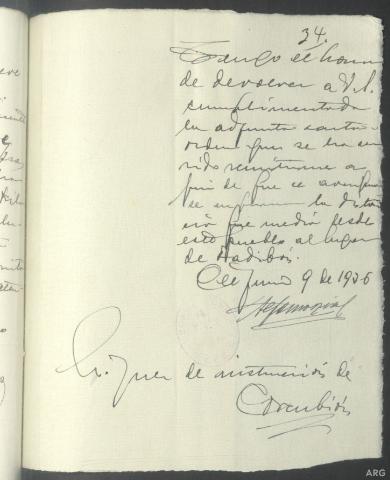 34.
Tengo el honor
de devolver a V.S.
cumplimentada
la adjunta carta-
orden que se ha ser
vido remitirme a
fin de que se
se informe la distan
cia que media desde
este pueblo al lugar
de
Cee Junio 9 de 1936
Sr. Juez de instrucción de
Corcubión
ARG